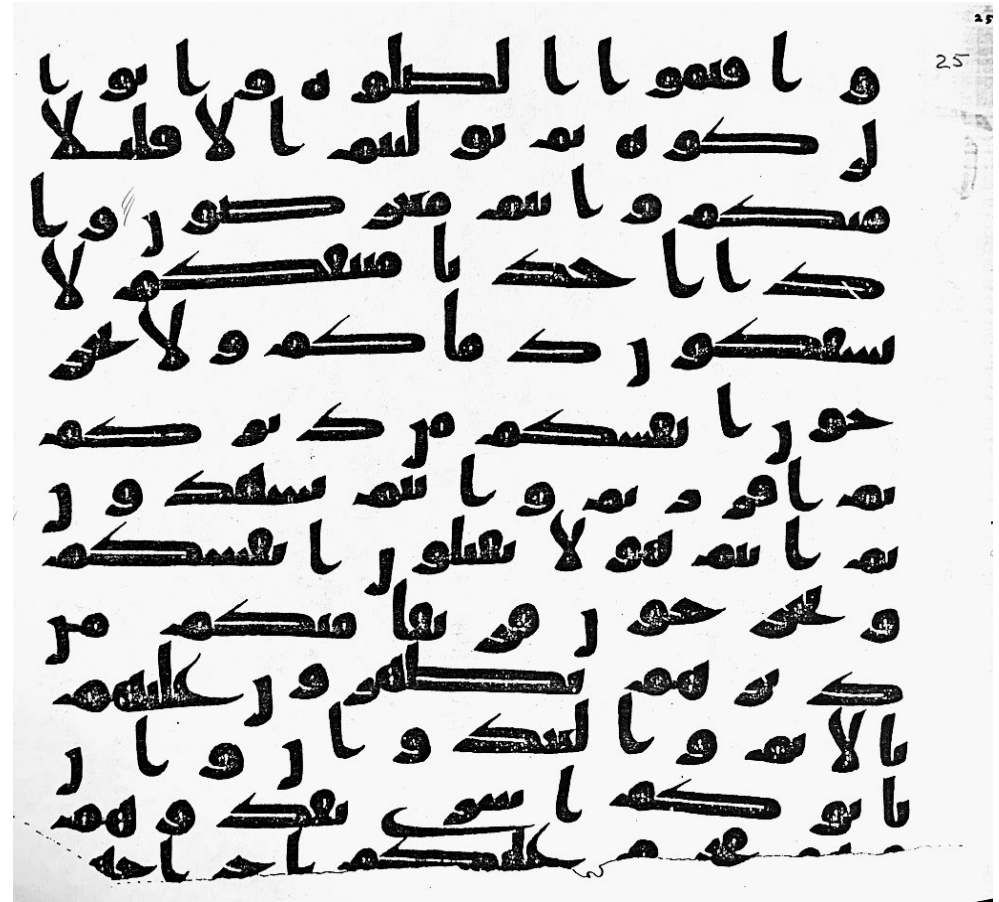 25
25
واقيموا الصلوه واتوا ا
لزكوه ثم توليتم الا قليلا
منكم وانتم معرضون وا
ذ اخذنا ميثقكم لا
تسفكون دماكم ولا تخر
جون انفسكم من ديركم
ثم اقررتم وانتم تشهدون
ثم انتم هولا تقتلون انفسكم
وتخرجون فريقا منكم من
ديرهم تظهرون عليهم
بالاثم والعدون وان
ياتوكم اسرى تفدوهم
وهو محرم عليكم اخراجهم